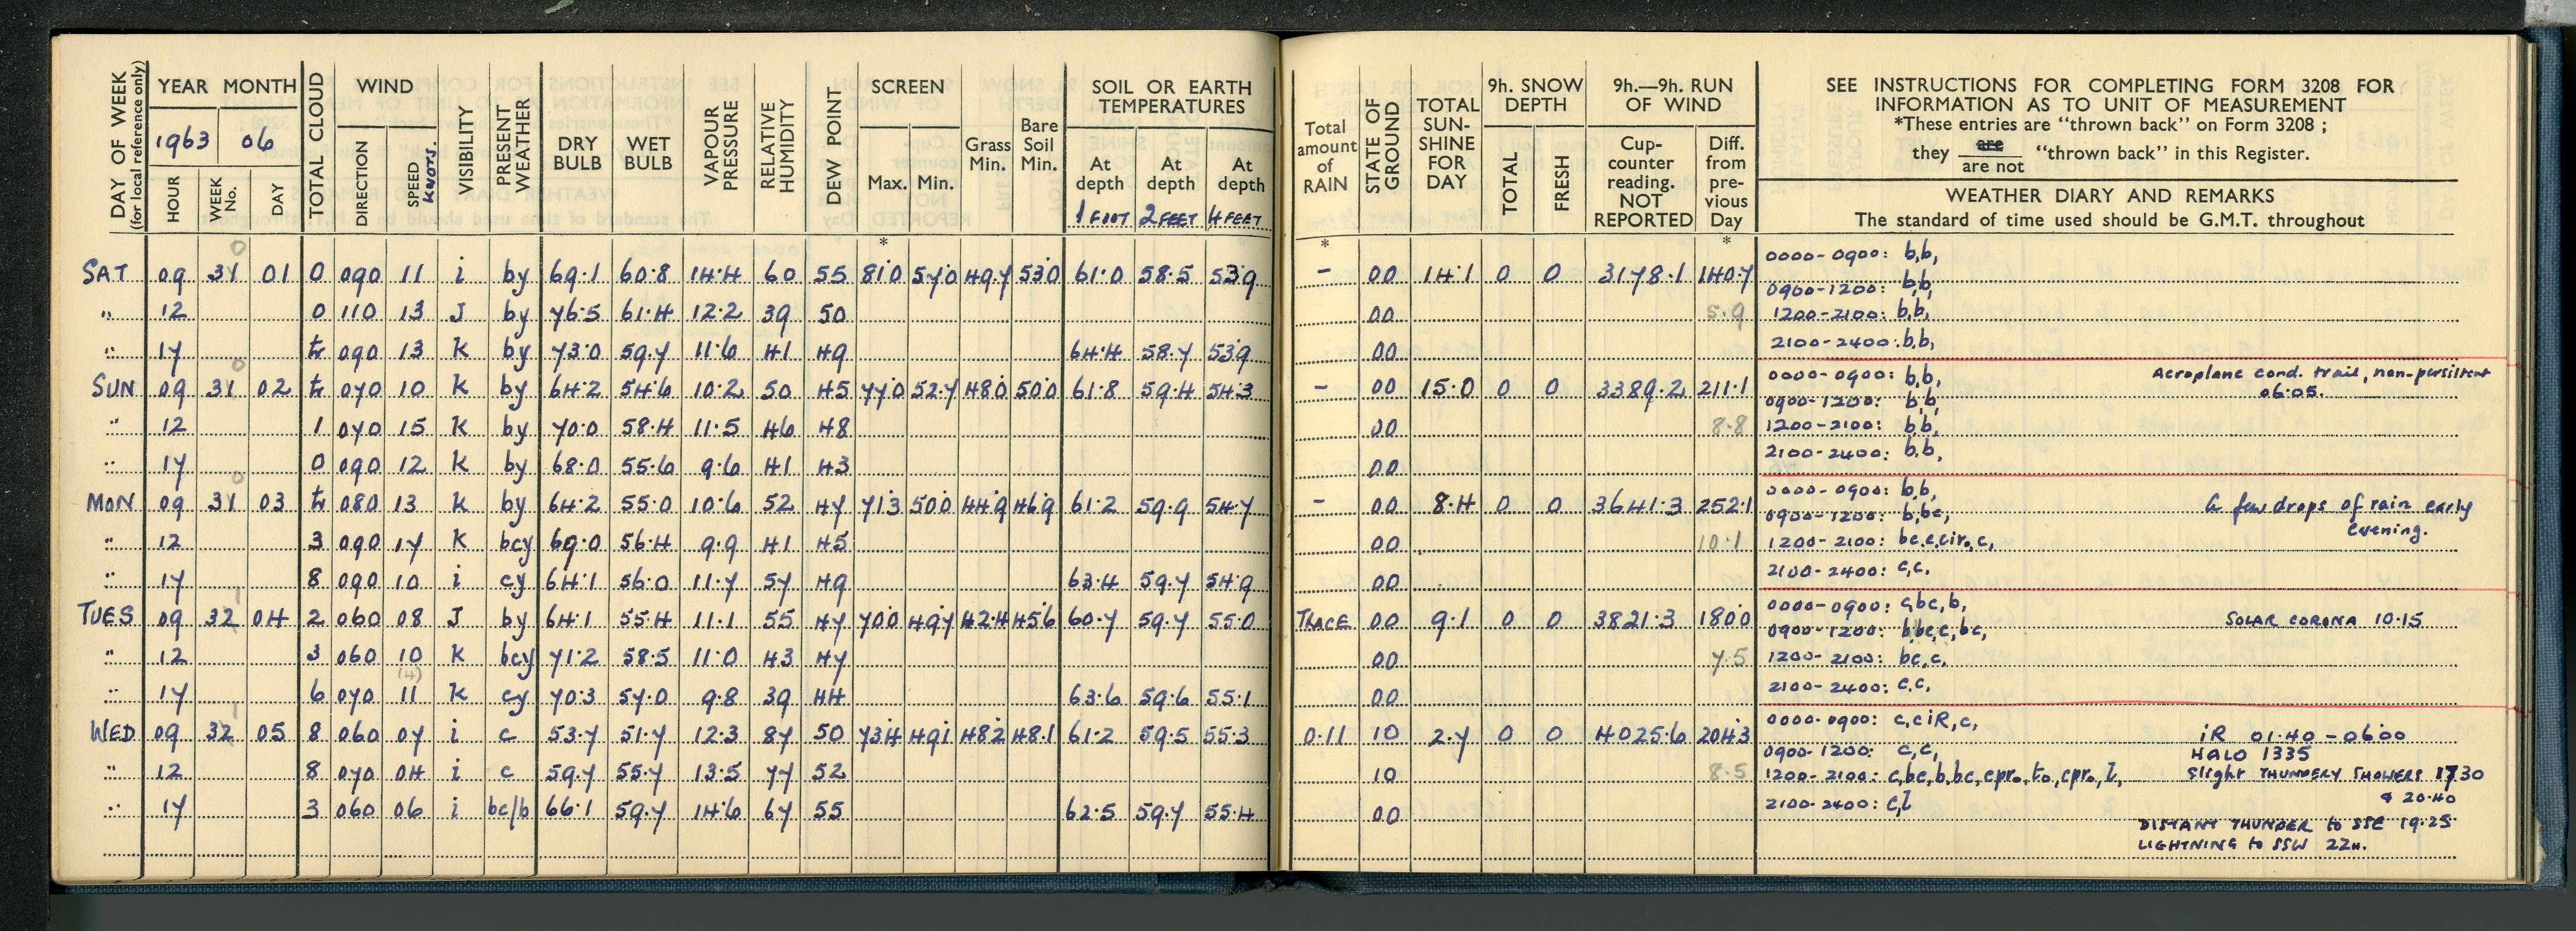 DAY OF WEEK (for local reference only) YEAR MONTH TOTAL CLOUD WIND VISIBILITY PRESENT WEATHER DRY BULB WET BULB VAPOUR PRESSURE RELATIVE HUMIDITY DEW POINT SCREEN Grass Min. Bare Soil Min. SOIL OR EARTH TEMPERATURES
1963 06
HOUR WEEK No. DAY DIRECTION SPEED KNOTS. Max. Min. At depth At depth At depth
1 FOOT 2 FEET 4 FEET
*
SAT 09 31 01 0 090 11 i by 69.1 60.8 14.4 60 55 81.0 57.0 49.7 53.0 61.0 58.5 53.9
" 12 0 110 13 J by 76.5 61.4 12.2 39 50
" 17 tr 090 13 K by 73.0 59.7 11.6 41 49 64.4 58.7 53.9
SUN 09 31 02 tr 070 10 K by 64.2 54.6 10.2 50 45 77.0 52.7 48.0 50.0 61.8 59.4 54.3
" 12 1 070 15 K by 70.0 58.4 11.5 46 48
" 17 0 090 12 K by 68.0 55.6 9.6 41 43
MON 09 31 03 tr 080 13 K by 64.2 55.0 10.6 52 47 71.3 50.0 44.9 46.9 61.2 59.9 54.7
" 12 3 090 17 K bcy 69.0 56.4 9.9 41 45
" 17 8 090 10 i cy 64.1 56.0 11.7 57 49 63.4 59.7 54.9
TUES 09 32 04 2 060 08 J by 64.1 55.4 11.1 55 47 70.0 49.7 42.4 45.6 60.7 59.7 55.0
" 12 3 060 10 K bcy 71.2 58.5 11.0 43 47
(4)
" 17 6 070 11 K cy 70.3 57.0 9.8 39 44 63.6 59.6 55.1
WED 09 32 05 8 060 07 i c 53.7 51.7 12.3 87 50 73.4 49.1 48.2 48.1 61.2 59.5 55.3
" 12 8 070 04 i c 59.7 55.7 13.5 77 52
" 17 3 060 06 i bc/b 66.1 59.7 14.6 67 55 62.5 59.7 55.4
Total amount of RAIN STATE OF GROUND TOTAL SUN-SHINE FOR DAY 9h. SNOW DEPTH 9h.—9h. RUN OF WIND
TOTAL FRESH Cup-counter reading. NOT REPORTED Diff. from pre-vious Day
SEE INSTRUCTIONS FOR COMPLETING FORM 3208 FOR
INFORMATION AS TO UNIT OF MEASUREMENT
*These entries are "thrown back" on Form 3208 ;
they are / are not "thrown back" in this Register.
WEATHER DIARY AND REMARKS
The standard of time used should be G.M.T. throughout
* *
– 00 14.1 0 0 3178.1 140.7
00 5.9
00
– 00 15.0 0 0 3389.2 211.1
00 8.8
00
– 00 8.4 0 0 3641.3 252.1
00 10.1
00
TRACE 00 9.1 0 0 3821.3 180.0
00 7.5
00
0.11 10 2.7 0 0 4025.6 204.3
10 8.5
00
0000-0900: b,b,
0900-1200: b,b,
1200-2100: b,b,
2100-2400: b,b,
0000-0900: b,b, Aeroplane cond. trail, non-persistent
0900-1200: b,b, 06.05.
1200-2100: b,b,
2100-2400: b,b,
0000-0900: b,b, A few drops of rain early
0900-1200: b,bc, Evening.
1200-2100: bc,c,ciro,c,
2100-2400: c,c,
0000-0900: c,bc,b, SOLAR CORONA 10.15
0900-1200: b,bc,c,bc,
1200-2100: bc,c,
2100-2400: c,c,
0000-0900: c,ciR,c, iR 01.40 - 0600
0900-1200: c,c, HALO 1335
1200-2100: c,bc,b,bc,cpro,to,cpro,l, Slight THUNDERY SHOWERS 1730
2100-2400: c,l & 20.40
DISTANT THUNDER to SSE 19.25
LIGHTNING to SSW 22H.